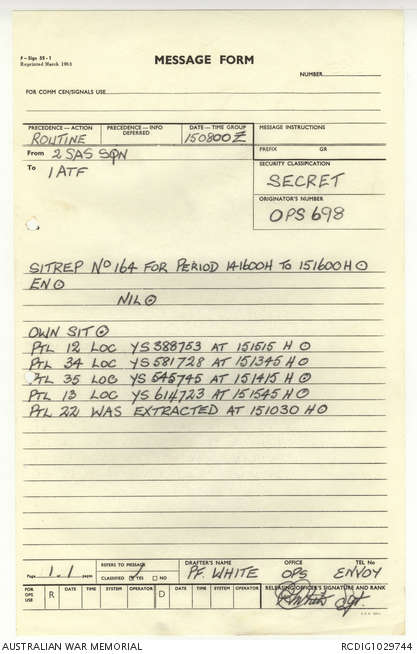 F-Sign 55-1
Reprinted March 1963
MESSAGE FORM
NUMBER
FOR COMM CEN/SIGNALS USE
PRECEDENCE — ACTION PRECEDENCE — INFO DEFERRED DATE — TIME GROUP MESSAGE INSTRUCTIONS
ROUTINE 150800Z PREFIX GR
From 2 SAS SQN
To 1 ATF
SECURITY CLASSIFICATION
SECRET
ORIGINATOR'S NUMBER
OPS 698
SITREP No 164 FOR PERIOD 141600H TO 151600H ⊙
EN ⊙
NIL ⊙
OWN SIT ⊙
PTL 12 LOC YS 388753 AT 151515 H ⊙
PTL 34 LOC YS 581728 AT 151345 H ⊙
PTL 35 LOC YS 545745 AT 151415 H ⊙
PTL 13 LOC YS 614723 AT 151545 H ⊙
PTL 22 WAS EXTRACTED AT 151030 H ⊙
Page 1 of 1 pages REFERS TO MESSAGE DRAFTER'S NAME OFFICE TEL No
CLASSIFIED YES NO PF. WHITE OPS ENVOY
FOR OPS USE R DATE TIME SYSTEM OPERATOR D DATE TIME SYSTEM OPERATOR RELEASING OFFICER'S SIGNATURE AND RANK
AUSTRALIAN WAR MEMORIAL RCDIG1029744